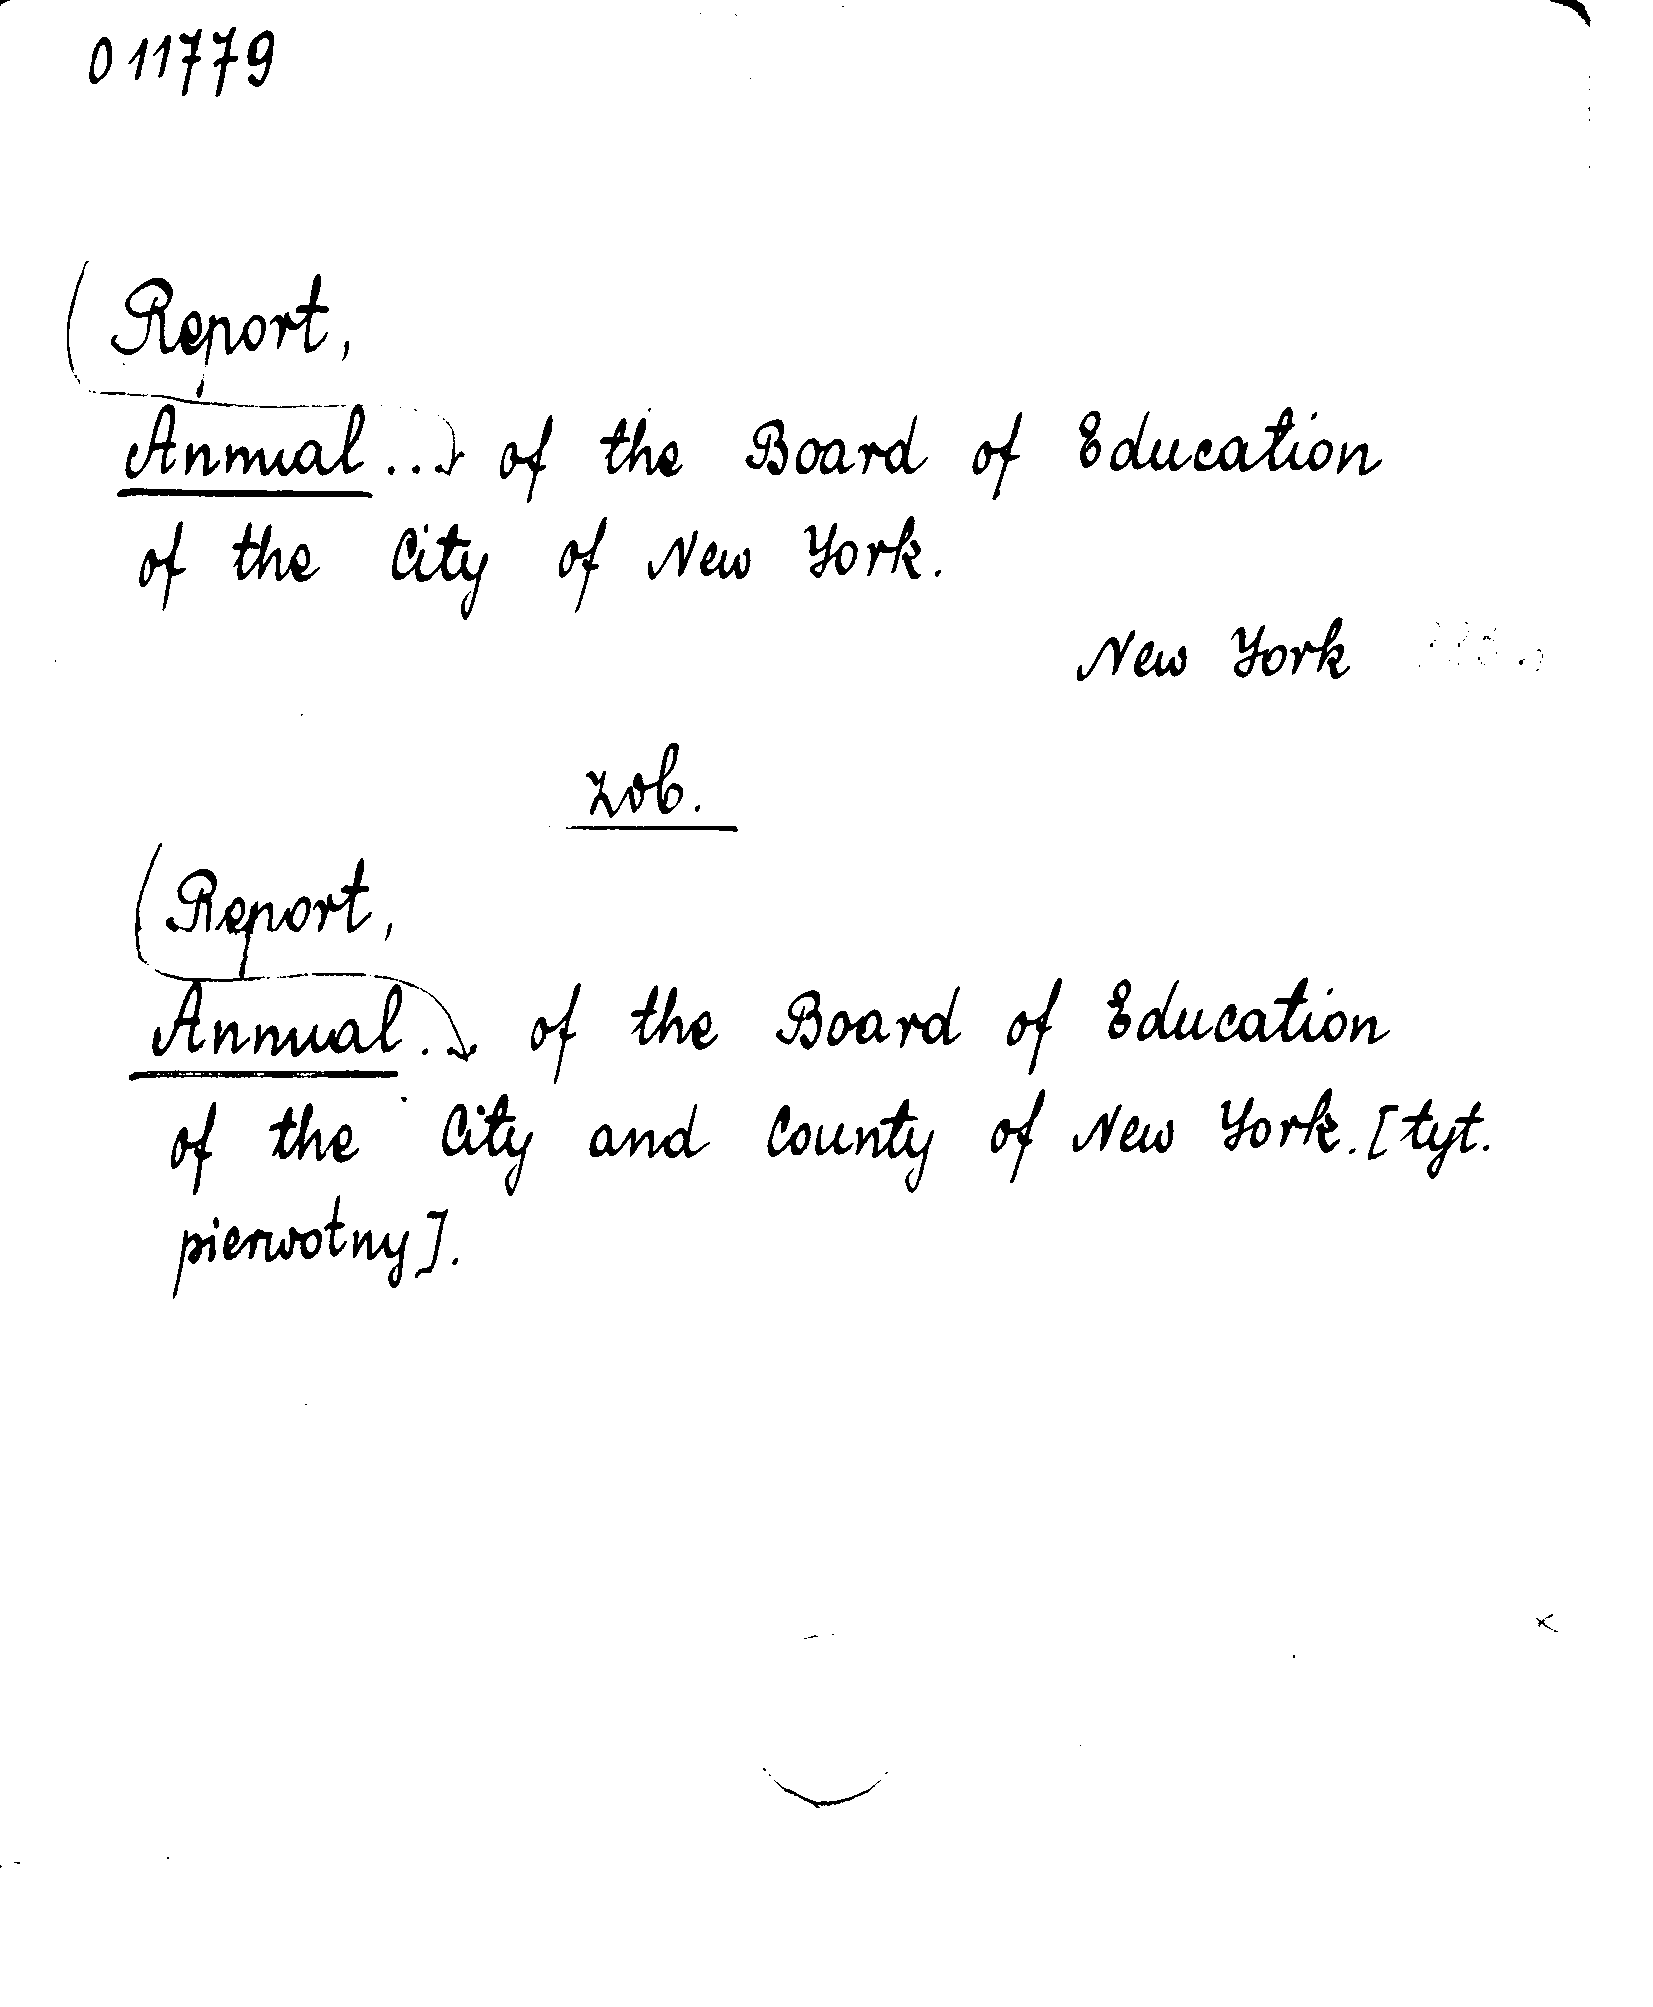 011779
Report,
Annual... of the Board of Education
of the City of New York.
New York
zob.
Report,
Annual.. of the Board of Education
of the City and County of New York. [tyt.
pierwotny].